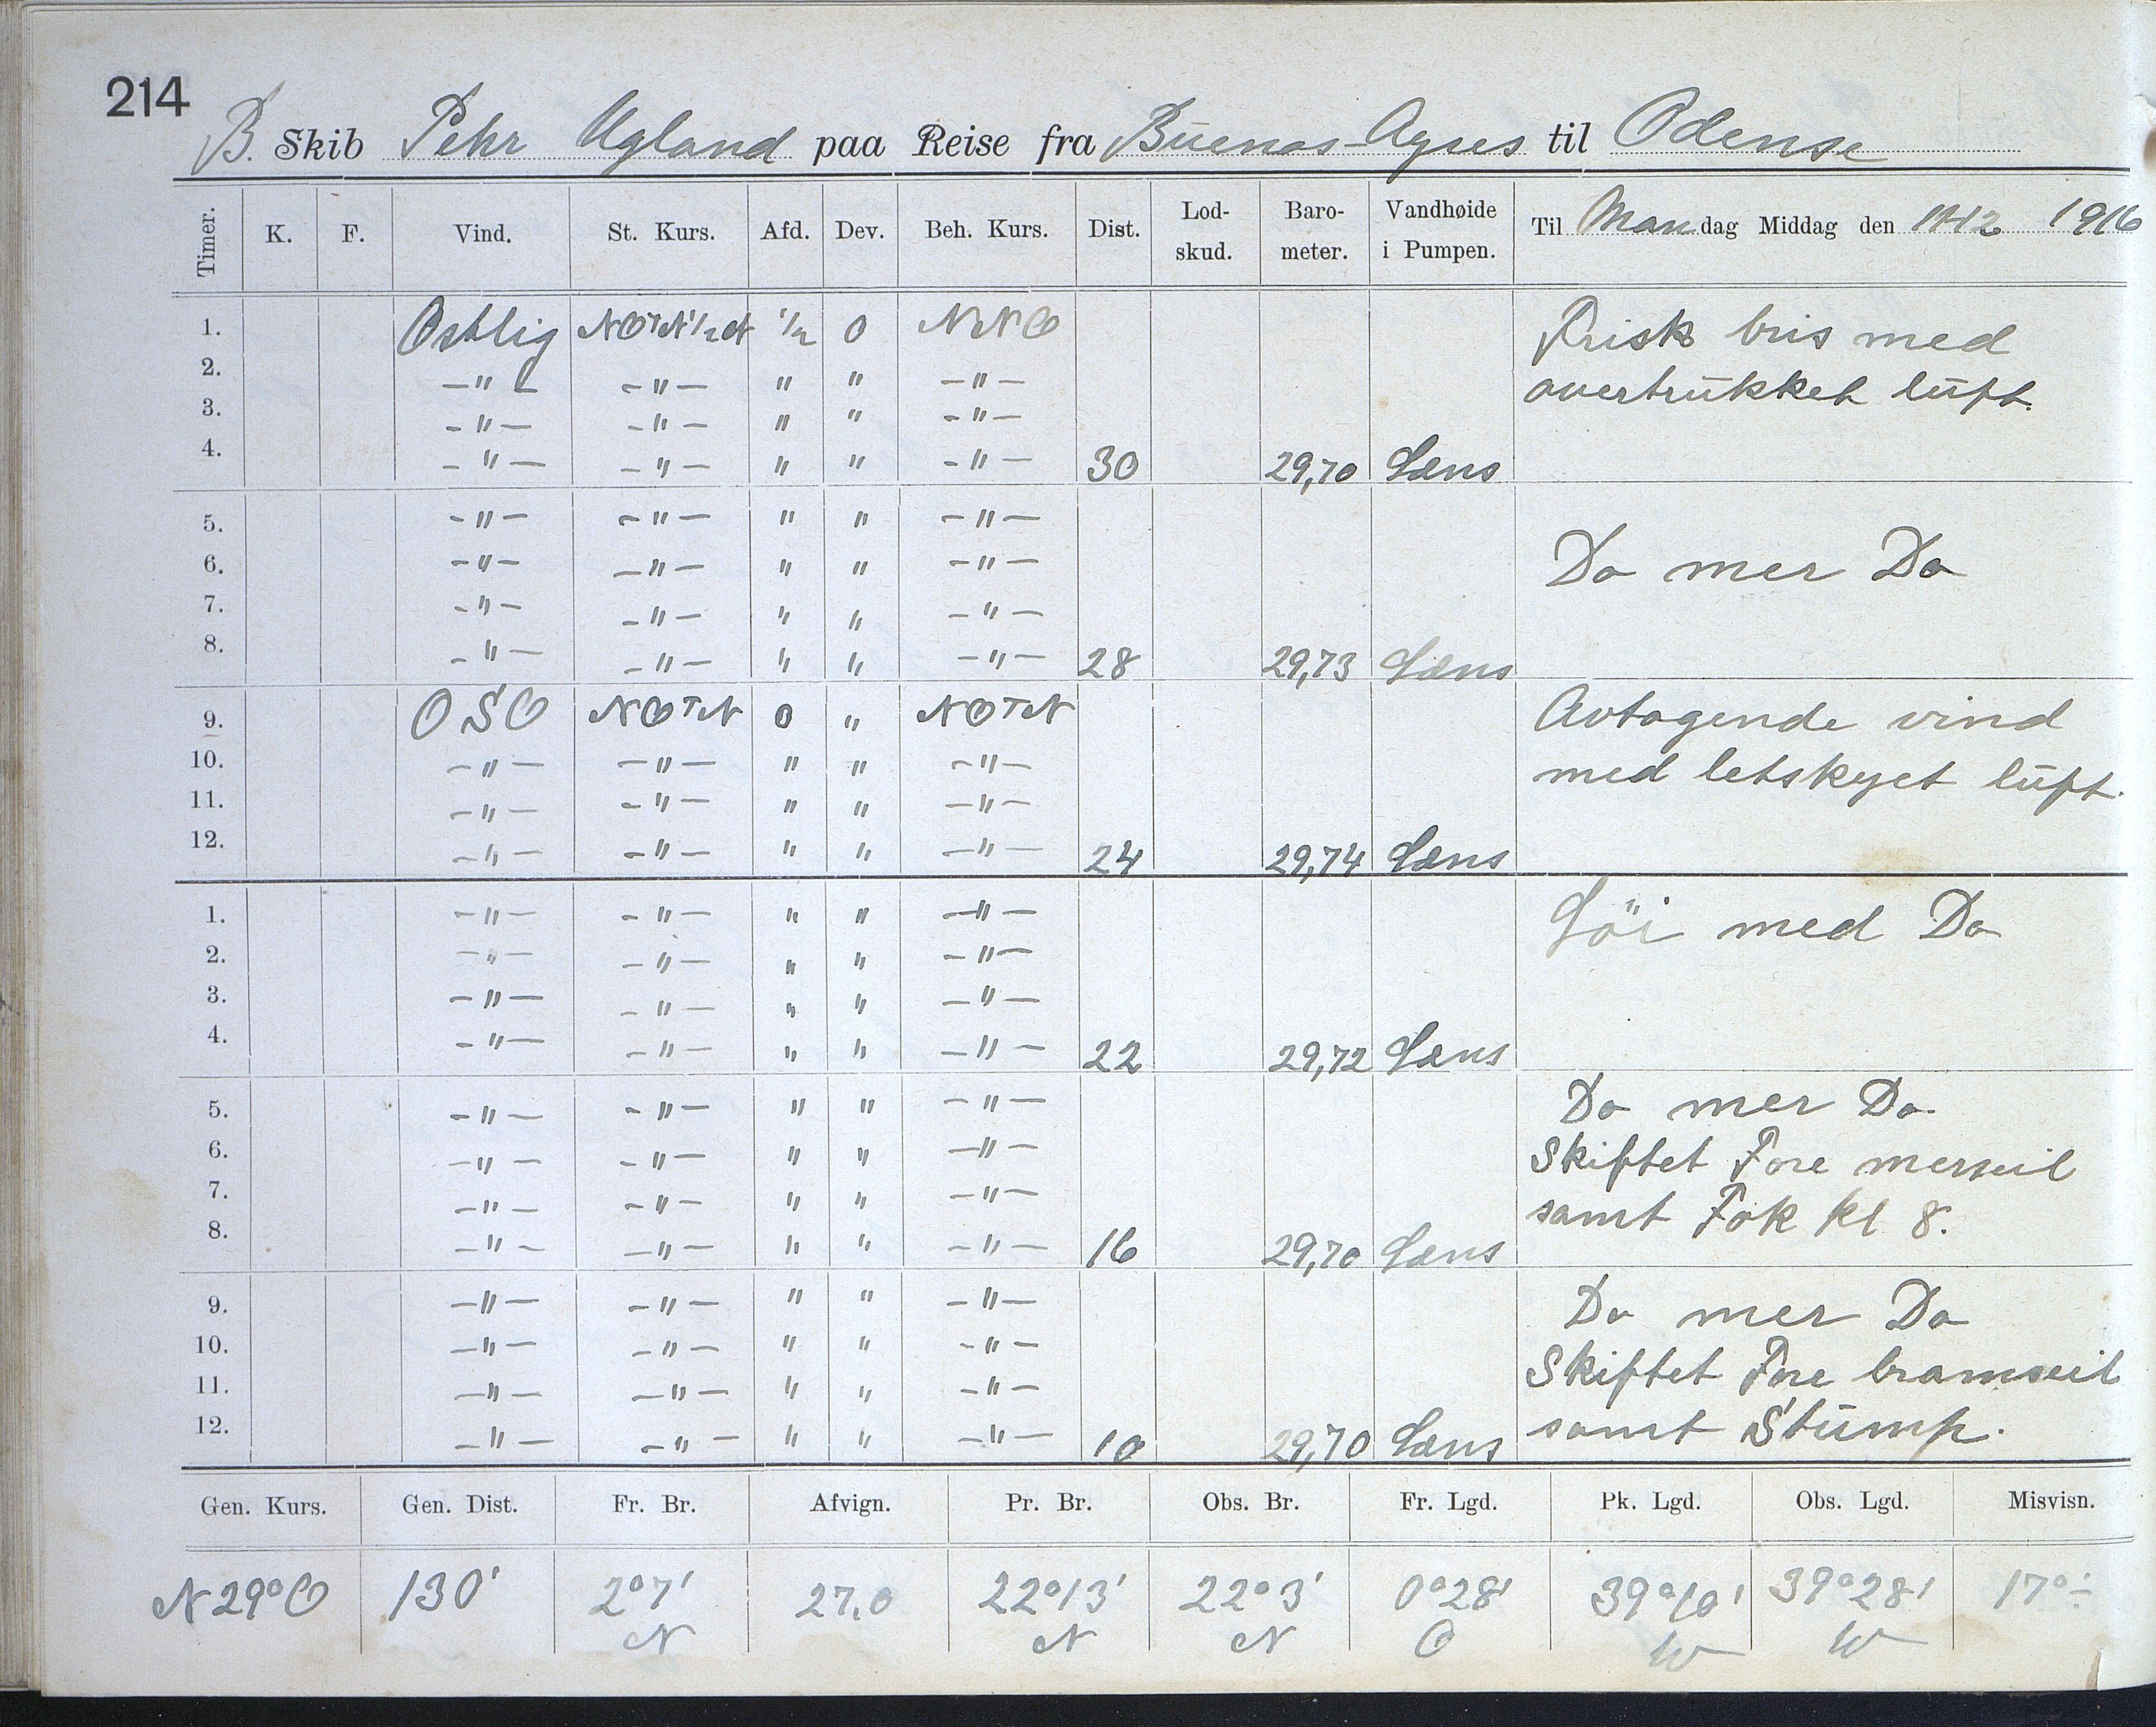 214
B. Skib Pehr Ugland paa Reise fra Buenos-Ayres til Odense
Timer. K. F. Vind. St. Kurs. Afd. Dev. Beh. Kurs. Dist. Lod-skud. Baro-meter. Vandhøide i Pumpen. Til Mandag Middag den 11-12 1916
1. Ostlig NOTN½N ½ 0 NNO Frisk bris med
2. -"- -"- " " -"- overtrukket luft.
3. -"- -"- " " -"-
4. -"- -"- " " -"- 30 29,70 Læns
5. -"- -"- " " -"-
6. -"- -"- " " -"- Do mer Do
7. -"- -"- " " -"-
8. -"- -"- " " -"- 28 29,73 Læns
9. OSO NOTN 0 " NOTN Avtagende vind
10. -"- -"- " " -"- med letskyet luft.
11. -"- -"- " " -"-
12. -"- -"- " " -"- 24 29,74 Læns
1. -"- -"- " " -"- Löi med Do
2. -"- -"- " " -"-
3. -"- -"- " " -"-
4. -"- -"- " " -"- 22 29,72 Læns
5. -"- -"- " " -"- Do mer Do
6. -"- -"- " " -"- Skiftet Fore merseil
7. -"- -"- " " -"- samt Fok kl 8.
8. -"- -"- " " -"- 16 29,70 Læns
9. -"- -"- " " -"- Do mer Do
10. -"- -"- " " -"- Skiftet Fore bramseil
11. -"- -"- " " -"- samt Stump.
12. -"- -"- " " -"- 10 29,70 Læns
Gen. Kurs. Gen. Dist. Fr. Br. Afvign. Pr. Br. Obs. Br. Fr. Lgd. Pk. Lgd. Obs. Lgd. Misvisn.
N29°O 130' 2°7' 27,0 22°13' 22°3' 0°28' 39°10' 39°28' 17°÷
N N N O W W